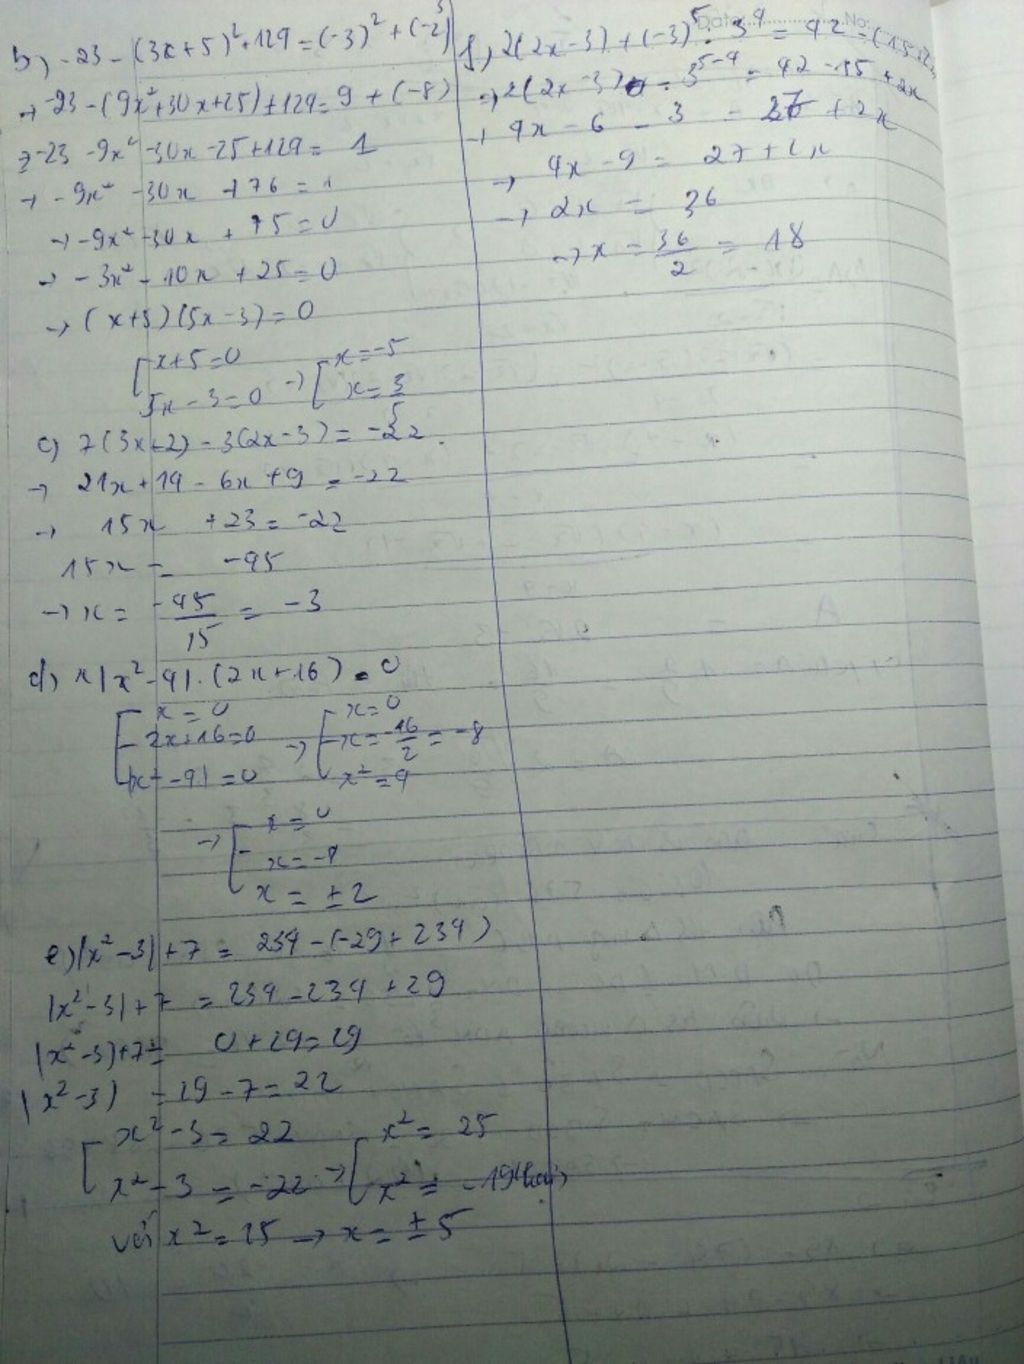 b) -23 - (3x+5)²+129 = (-3)² + (-2)³
→ -23 - (9x²+30x+25)+129 = 9 + (-8)
→ -23 -9x² -30x -25+129 = 1
→ -9x² -30x +76 = 1
→ -9x² -30x + 75 = 0
→ -3x² - 10x + 25 = 0
→ (x+5)(5x-3) = 0
[x+5=0
5x-3=0 → [x=-5
x=3/5
c) 7(3x+2) - 3(2x-3) = -22.
→ 21x+14 - 6x +9 = -22
→ 15x +23 = -22
15x = -45
→ x = -45/15 = -3
d) x|x²-4|.(2x+16) = 0
[x=0
2x+16=0
|x²-4|=0 → [x=0
x=-16/2=-8
x²=4
→ [x=0
x=-8
x=±2
e) |x²-3|+7 = 234-(-29+234)
|x²-3|+7 = 234-234+29
|x²-3|+7= 0+29=29
|x²-3| =29-7=22
[x²-3=22
x²-3=-22 → [x²=25
x²=-19(loại)
với x²=25 → x=±5
f) 2(2x-3)+(-3)⁵:3⁴ = 42-(15-2x)
→ 2(2x-3) - 3⁵⁻⁴ = 42-15+2x
→ 4x-6-3 = 27+2x
→ 4x-9 = 27+2x
→ 2x = 36
→ x = 36/2 = 18
Date No: